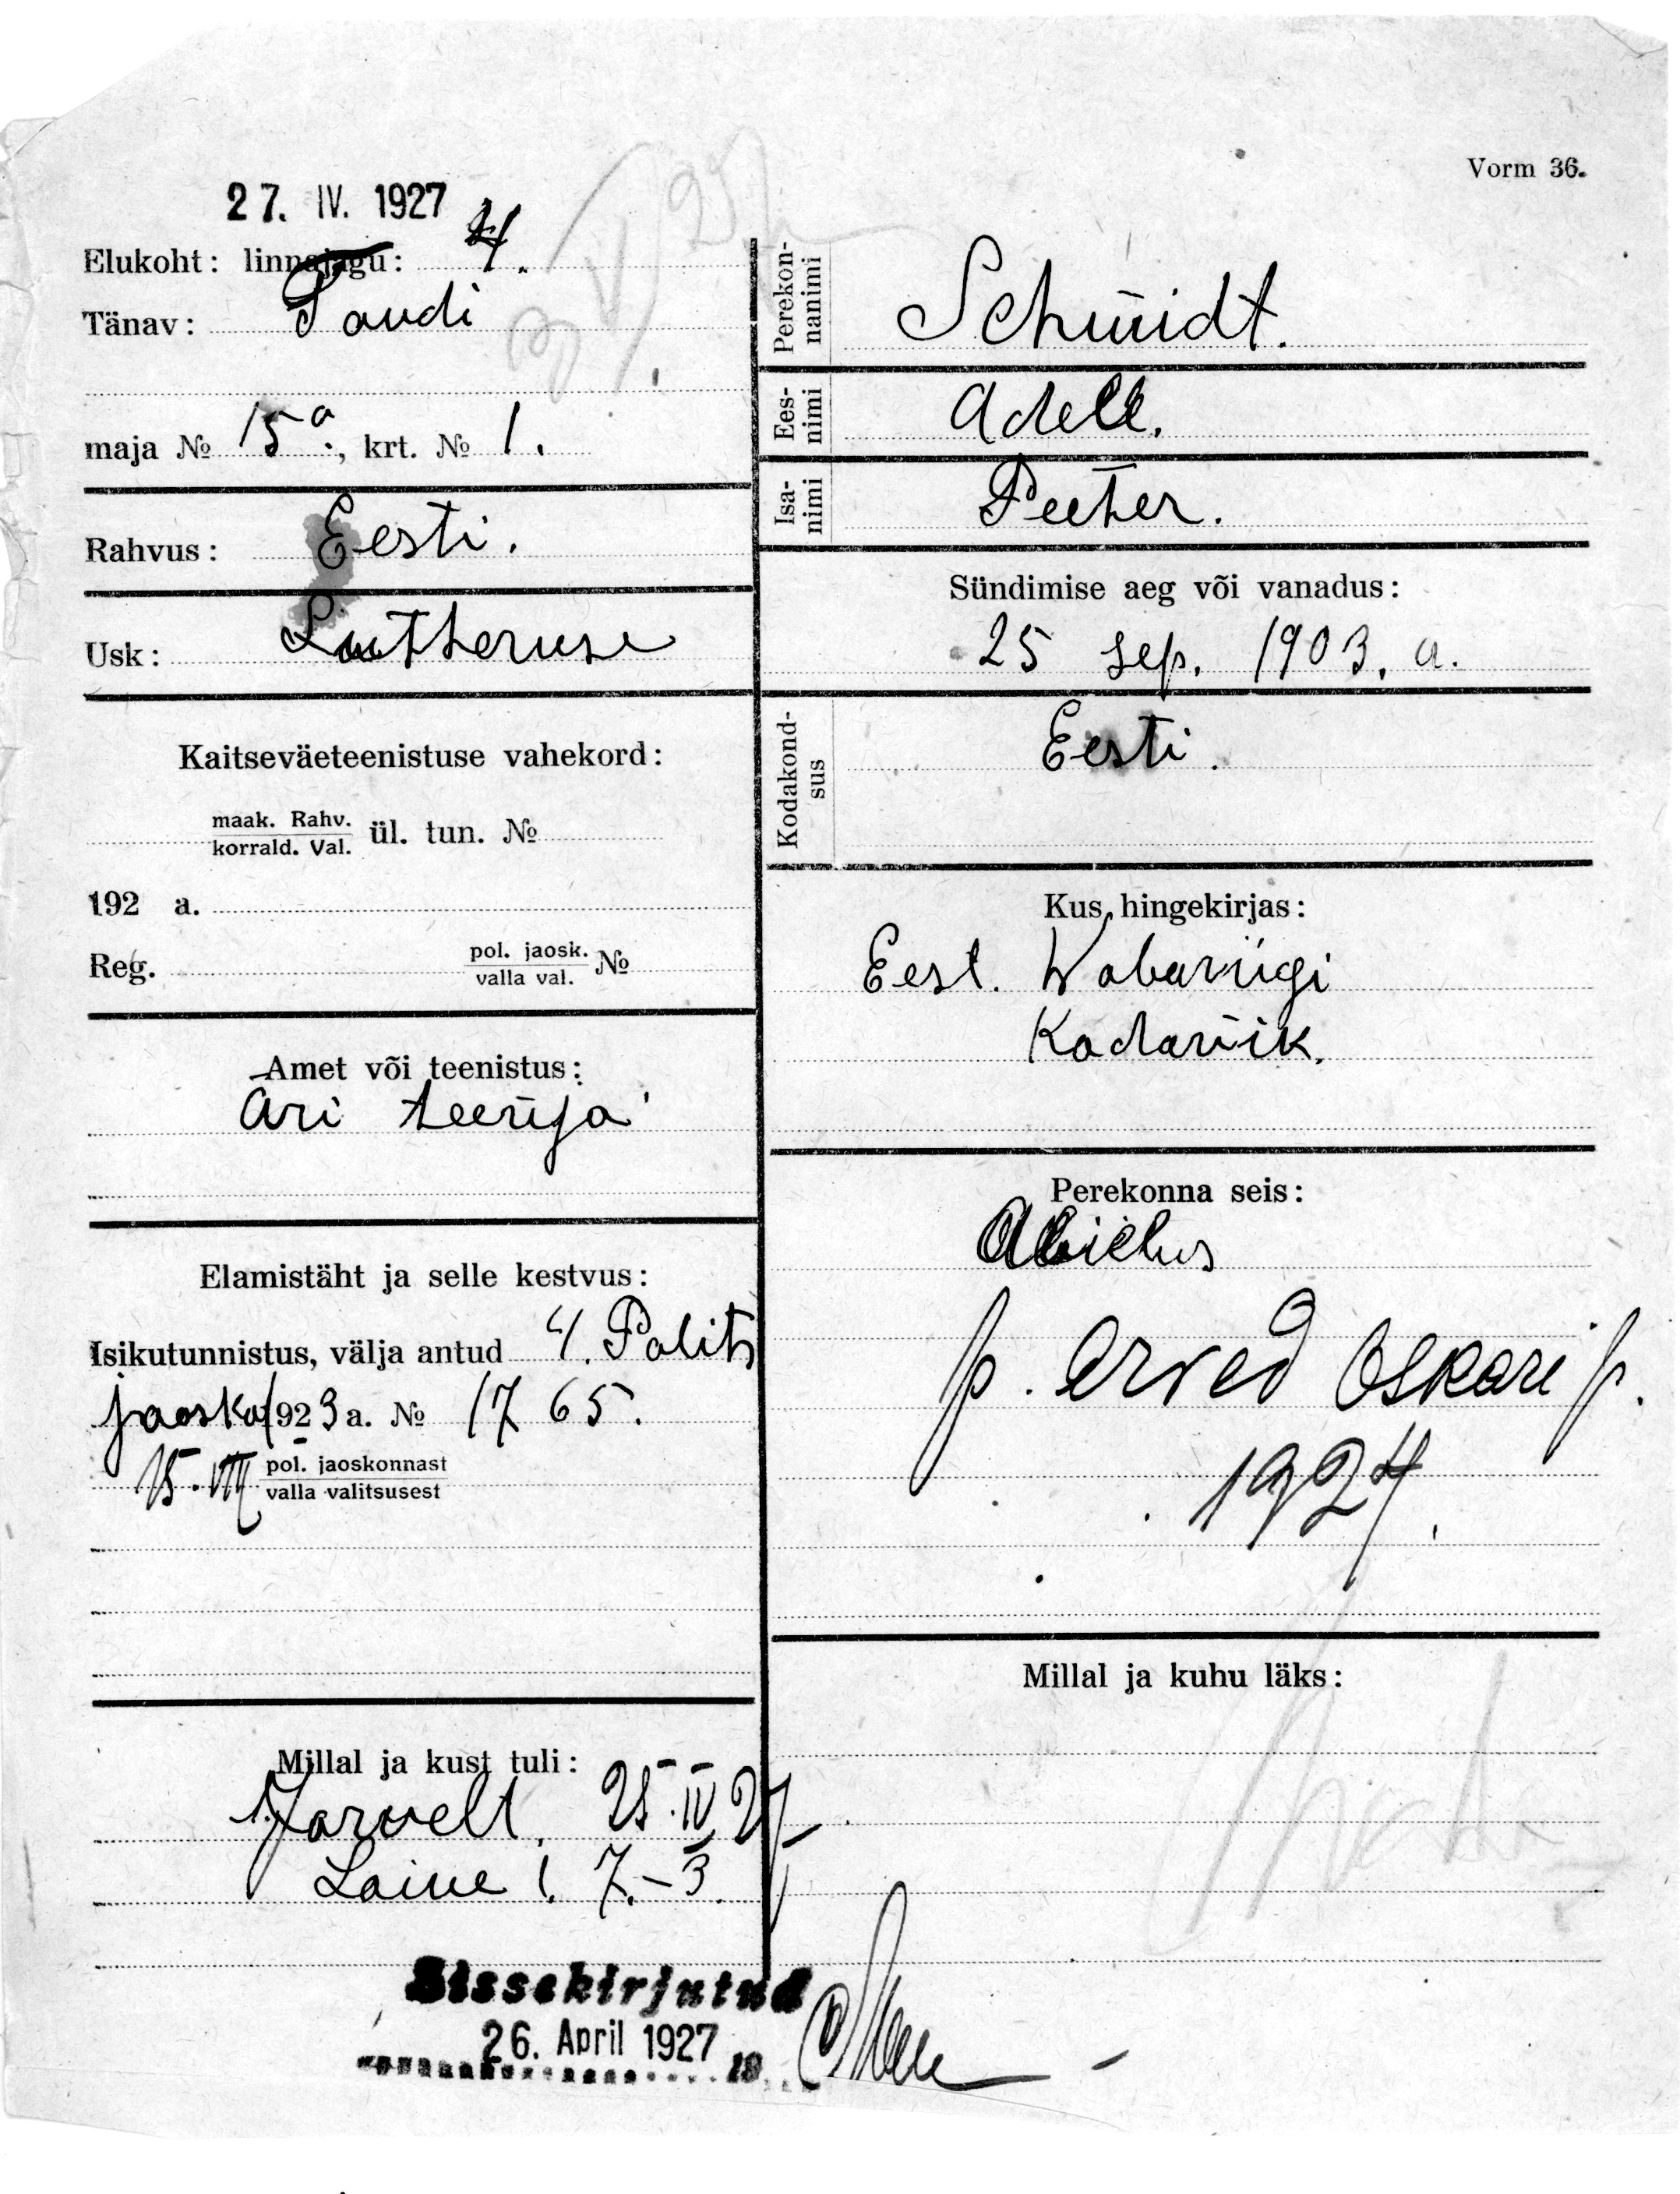 Vorm 36.
27. IV. 1927
Elukoht: linnajagu: 4.
Tänav:
maja № 15a., krt. № 1.
Rahvus: Eesti.
Usk: Lutheruse
Kaitseväeteenistuse vahekord:
maak. Rahv.
korrald. Val. ül. tun. №
192 a.
Reg. pol. jaosk.
valla val. №
Amet või teenistus:
Äri teenija
Elamistäht ja selle kestvus:
Isikutunnistus, välja antud 4. Polits
jaosko 1923 a. № 1765.
15. VIII pol. jaoskonnast
valla valitsusest
Millal ja kust tuli:
25. IV 27
Laine 1. 7.–3.
Sissekirjutud
26. April 1927
19
Perekon-
nanimi
Schmidt.
Ees-
nimi
Adele.
Isa-
nimi
Peeter.
Sündimise aeg või vanadus:
25 sep. 1903. a.
Kodakond-
sus
Eesti.
Kus hingekirjas:
Eest. Wabariigi
Kodanik.
Perekonna seis:
Abielus
p. Arved Oskari p.
1924.
Millal ja kuhu läks: